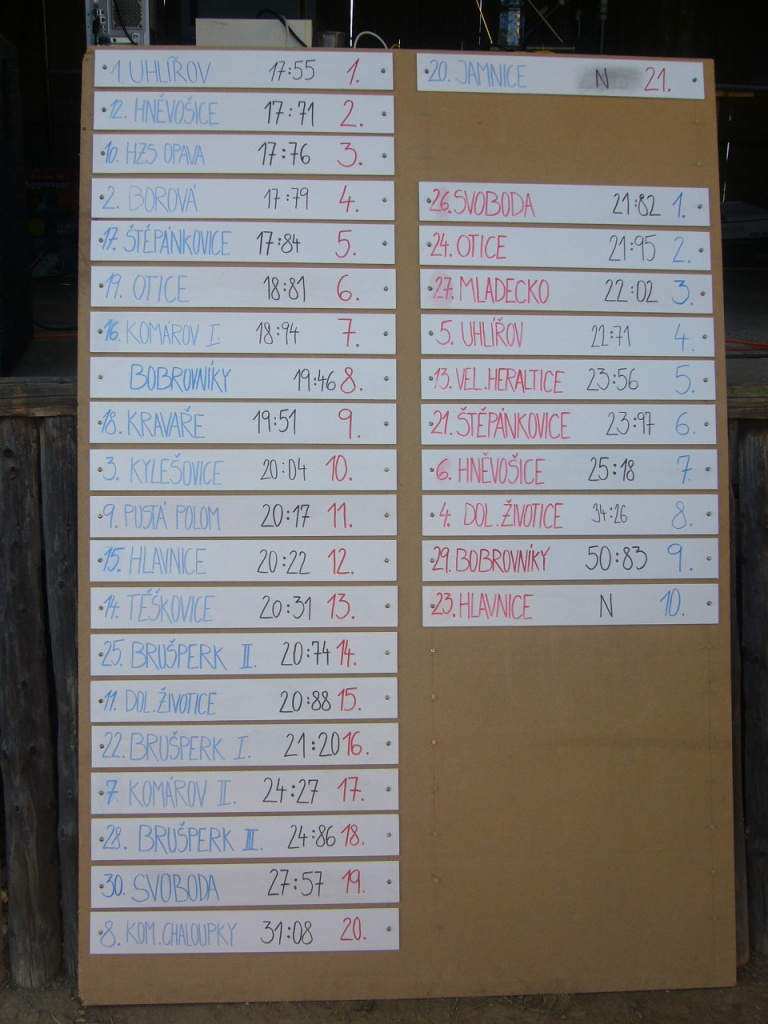 1 UHLÍŘOV 17:55 1.
12. HNĚVOŠICE 17:71 2.
10. HZS OPAVA 17:76 3.
2. BOROVÁ 17:79 4.
17. ŠTĚPÁNKOVICE 17:84 5.
19. OTICE 18:81 6.
16. KOMÁROV I. 18:94 7.
BOBROVNÍKY 19:46 8.
18. KRAVAŘE 19:51 9.
3. KYLEŠOVICE 20:04 10.
9. PUSTÁ POLOM 20:17 11.
15. HLAVNICE 20:22 12.
14. TĚŠKOVICE 20:31 13.
25. BRUŠPERK II. 20:74 14.
11. DOL. ŽIVOTICE 20:88 15.
22. BRUŠPERK I. 21:20 16.
7 KOMÁROV II. 24:27 17.
28. BRUŠPERK III. 24:86 18.
30. SVOBODA 27:57 19.
8. KOM. CHALOUPKY 31:08 20.
20. JAMNICE N 21.
26. SVOBODA 21:82 1.
24. OTICE 21:95 2.
27. MLADECKO 22:02 3.
5. UHLÍŘOV 22:71 4.
13. VEL. HERALTICE 23:56 5.
21. ŠTĚPÁNKOVICE 23:97 6.
6. HNĚVOŠICE 25:18 7.
4. DOL. ŽIVOTICE 34:26 8.
29. BOBROVNÍKY 50:83 9.
23. HLAVNICE N 10.